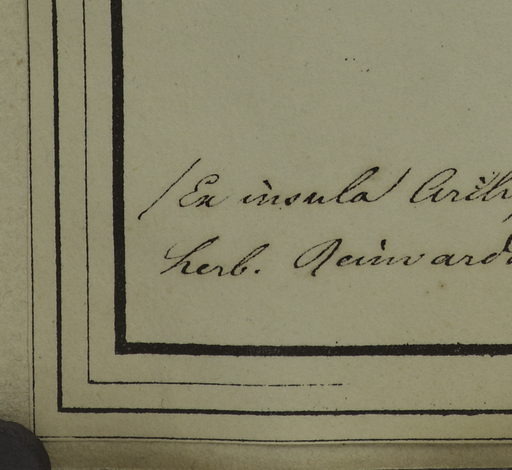 (Ex insula)
herb. Reinward